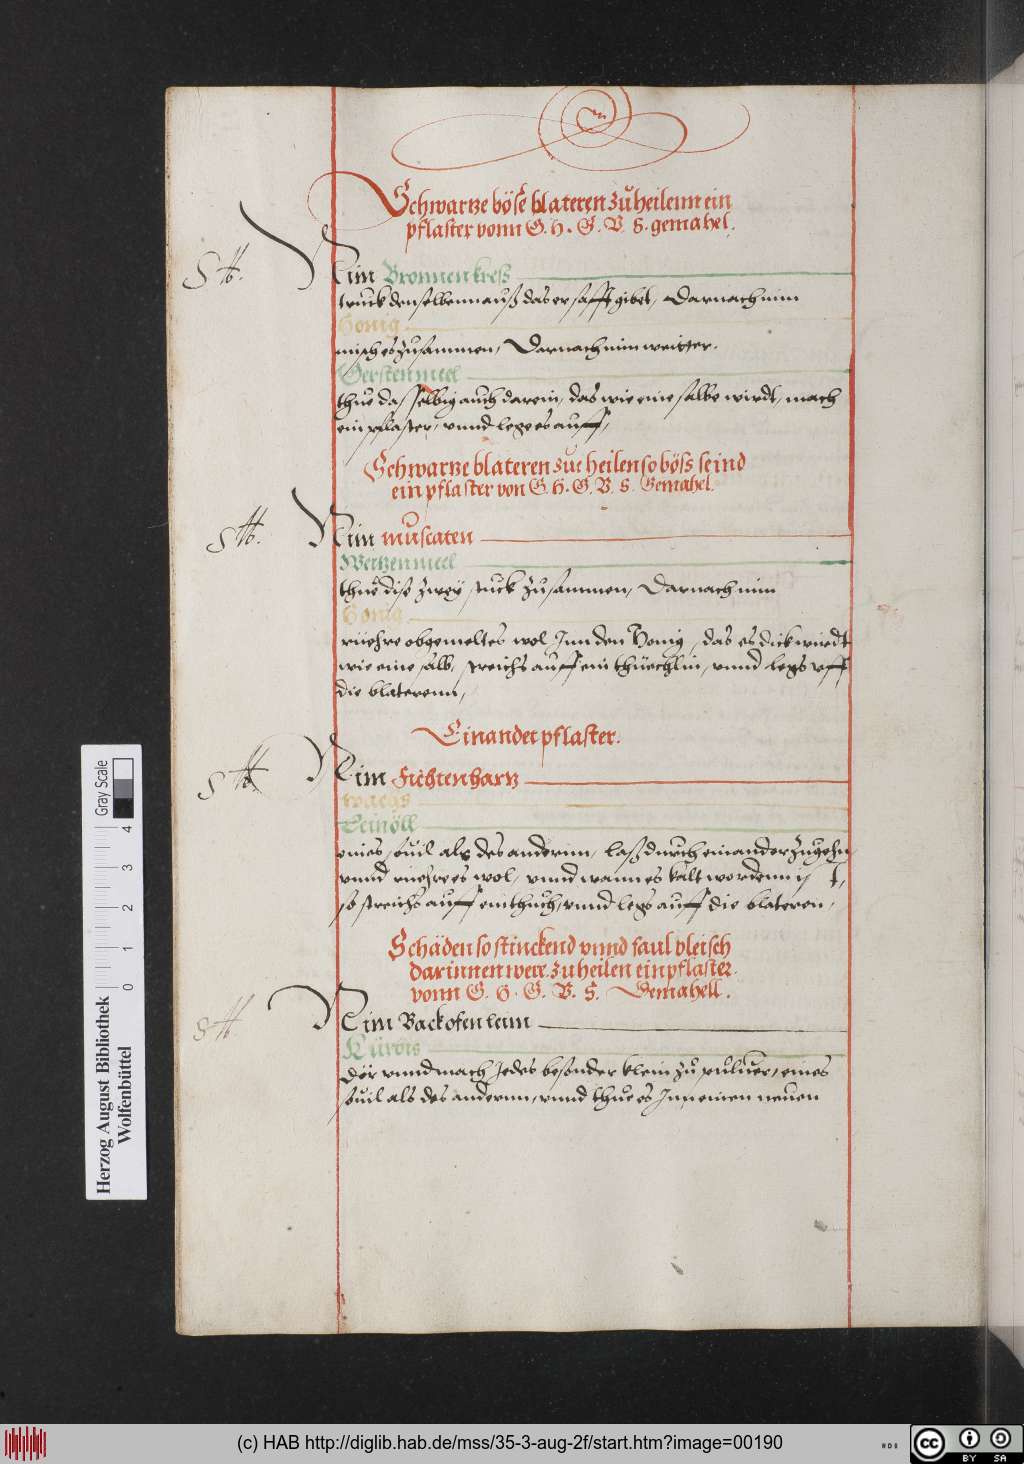 Schwartze böse blateren zu heilenn ein
pflaster vonn G. H. G. V. S. gemahel.
Nim Bronnenkreß
truck denselbenn auß das er safft gibet, Darnach nim
Honig
misch es zusammen, Darnach nim weitter.
Gerstenmeel
thue dasselbig auch darein, das wie eine salbe wirdt, mach
ein pflaster, vnnd lege es auff,
Schwartze blateren zue heilen so böss seind
ein pflaster von G. H. G. V. S. Gemahel.
Nim muscaten
Weitzenmeel
thue dise zwey stuck zusammen, Darnach nim
Honig
ruehre obgemeltes wol Jnn den Honig, das es dick wirdt
wie eine salb, streichs auff ein thüechlin, vnnd legs vff
die blaterenn,
Ein ander pflaster.
Nim Fichtenhartz
wachs
Leinöll
eines souil als des andernn, laß durch einander zugehn,
vnnd ruehre es wol, vnnd wann es kalt wordenn ist,
so streichs auff ein thuch, vnnd legs auff die blateren,
Schäden so stinckend vnnd faul vleisch
darinnen were zu heilen ein pflaster
vonn G. H. G. V. S. Gemahell.
Nim Backofenleim
Kürbis
dör vnnd mach Jedes besonder klein zu puluer, eines
souil als des anderenn, vnnd thue es Jnn einen neuen
Herzog August Bibliothek
Wolfenbüttel
0 1 2 3 4
Gray Scale
(c) HAB http://diglib.hab.de/mss/35-3-aug-2f/start.htm?image=00190
cc
BY SA